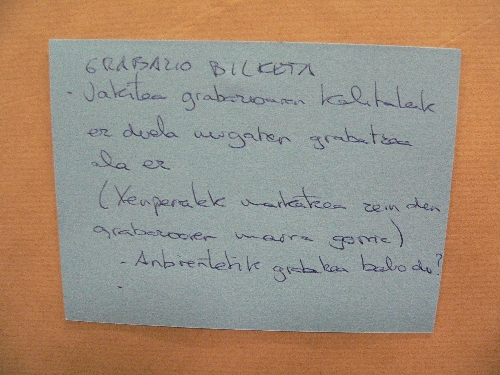 GRABAZIO BILKETA
- Jakitea grabazioaren kalitateak
ez duela mugatzen grabatzea
ala ez
( markatzea zein den
grabazioaren marra gorria)
- Anbientetik grabatzea balio du?
-